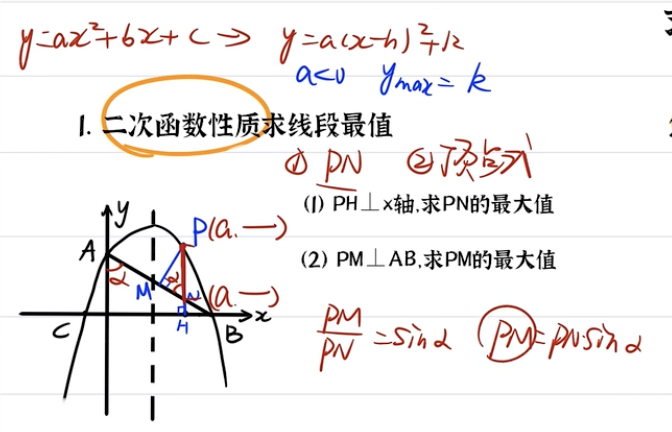 y=ax²+bx+c → y=a(x-h)²+k
a<0 ymax=k
1. 二次函数性质求线段最值
① PN ②顶点式
(1) PH⊥x轴,求PN的最大值
(2) PM⊥AB,求PM的最大值
y
A
P(a, —)
α
M
α
N
(a, —)
x
C
H
B
PM/PN=sinα PM=PN·sinα